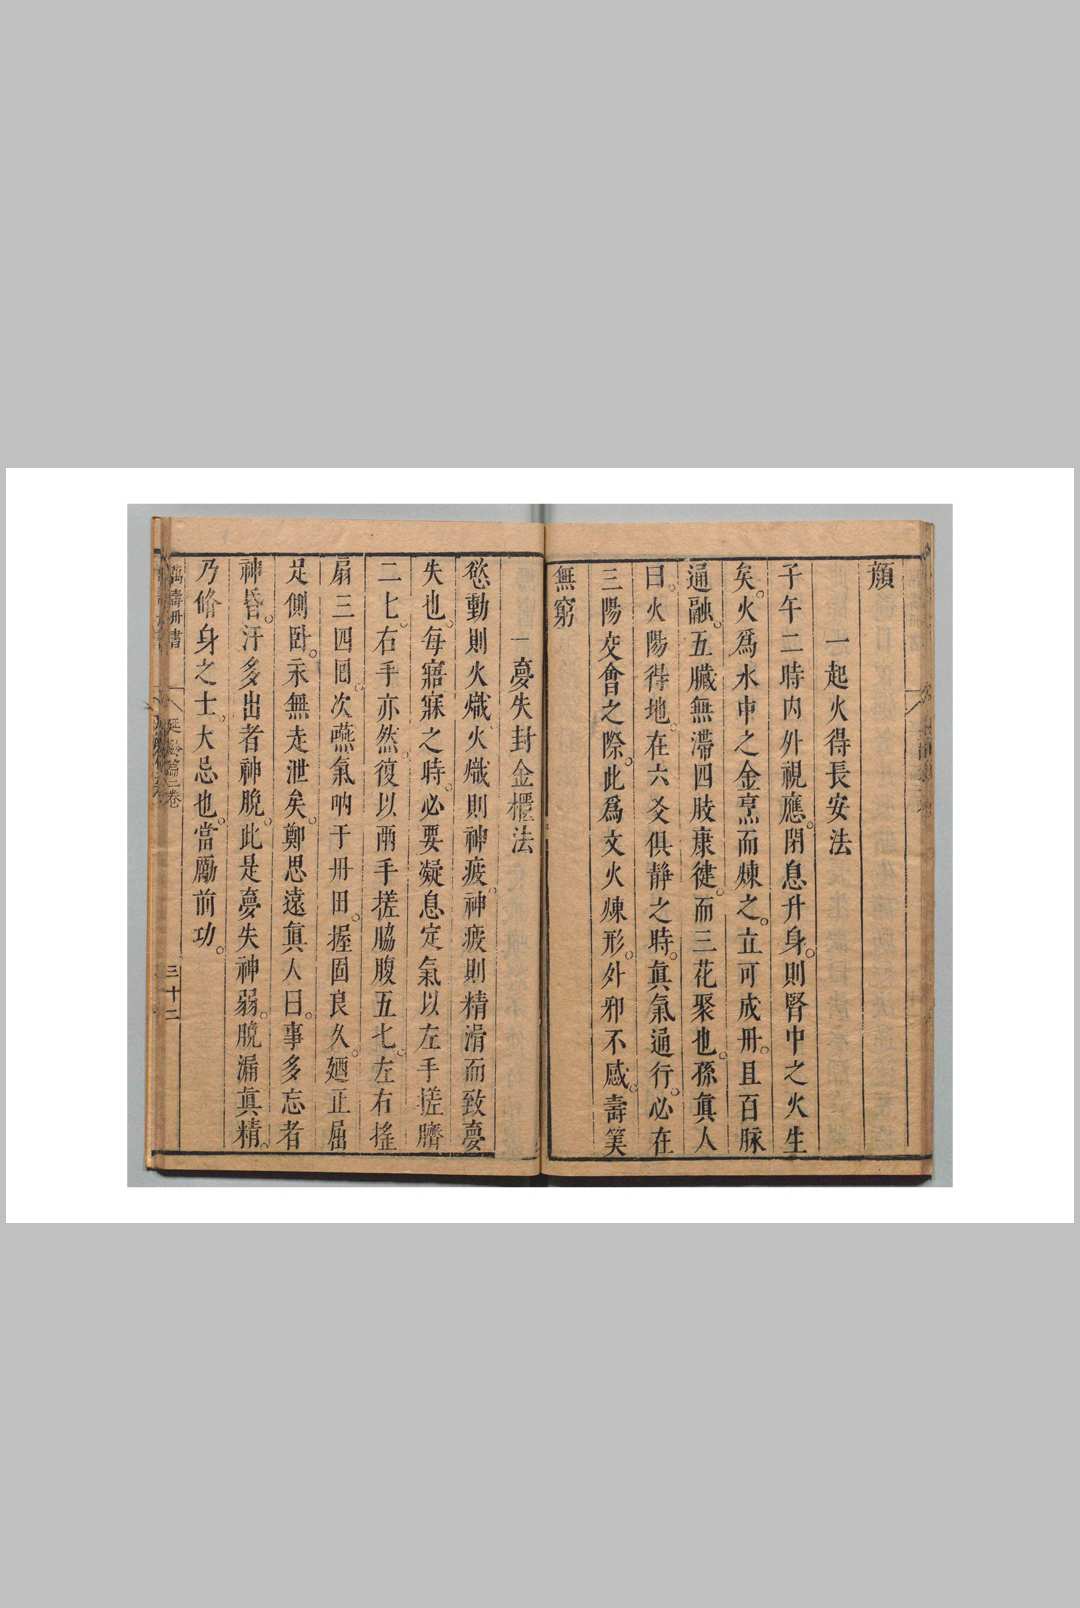 顔
一起火得長安法
子午二時内外視應。閉息升身。則腎中之火生
矣。火爲水中之金烹而煉之。立可成丹。且百脉
通融。五臟無滯四肢康健。而三花聚也。孫眞人
曰。火陽得地。在六爻俱靜之時。眞氣通行。必在
三陽交會之際。此爲文火煉形。外邪不感。壽筭
無窮
一夢失封金櫃法
慾動則火熾。火熾則神疲。神疲則精滑而致夢
失也。每寤寐之時。必要凝息定氣以左手搓臍
二七。右手亦然。復以兩手搓脇腹五七。左右搖
扇三四囘。次嚥氣吶于丹田。握固良久。廼正屈
足側卧。永無走泄矣。鄭思遠眞人曰。事多忘者
神昏。汗多出者神脫。此是夢失神弱。脫漏眞精。
乃脩身之士。大忌也。當勵前功。
萬壽丹書
延齡篇二卷
三十二